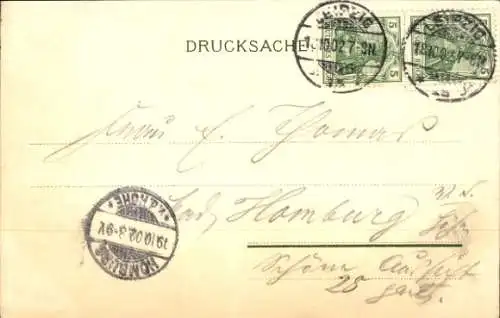 LEIPZIG LEIPZIG
18.10.02.7-8N. 18.10.02.7-8N.
5 5
DRUCKSACHE
Frau E. Thomas
Bad Homburg v. d. Höhe
HOMBURG v.d. HÖHE
19.10.02.3-9V.
Schöne Aussicht
28